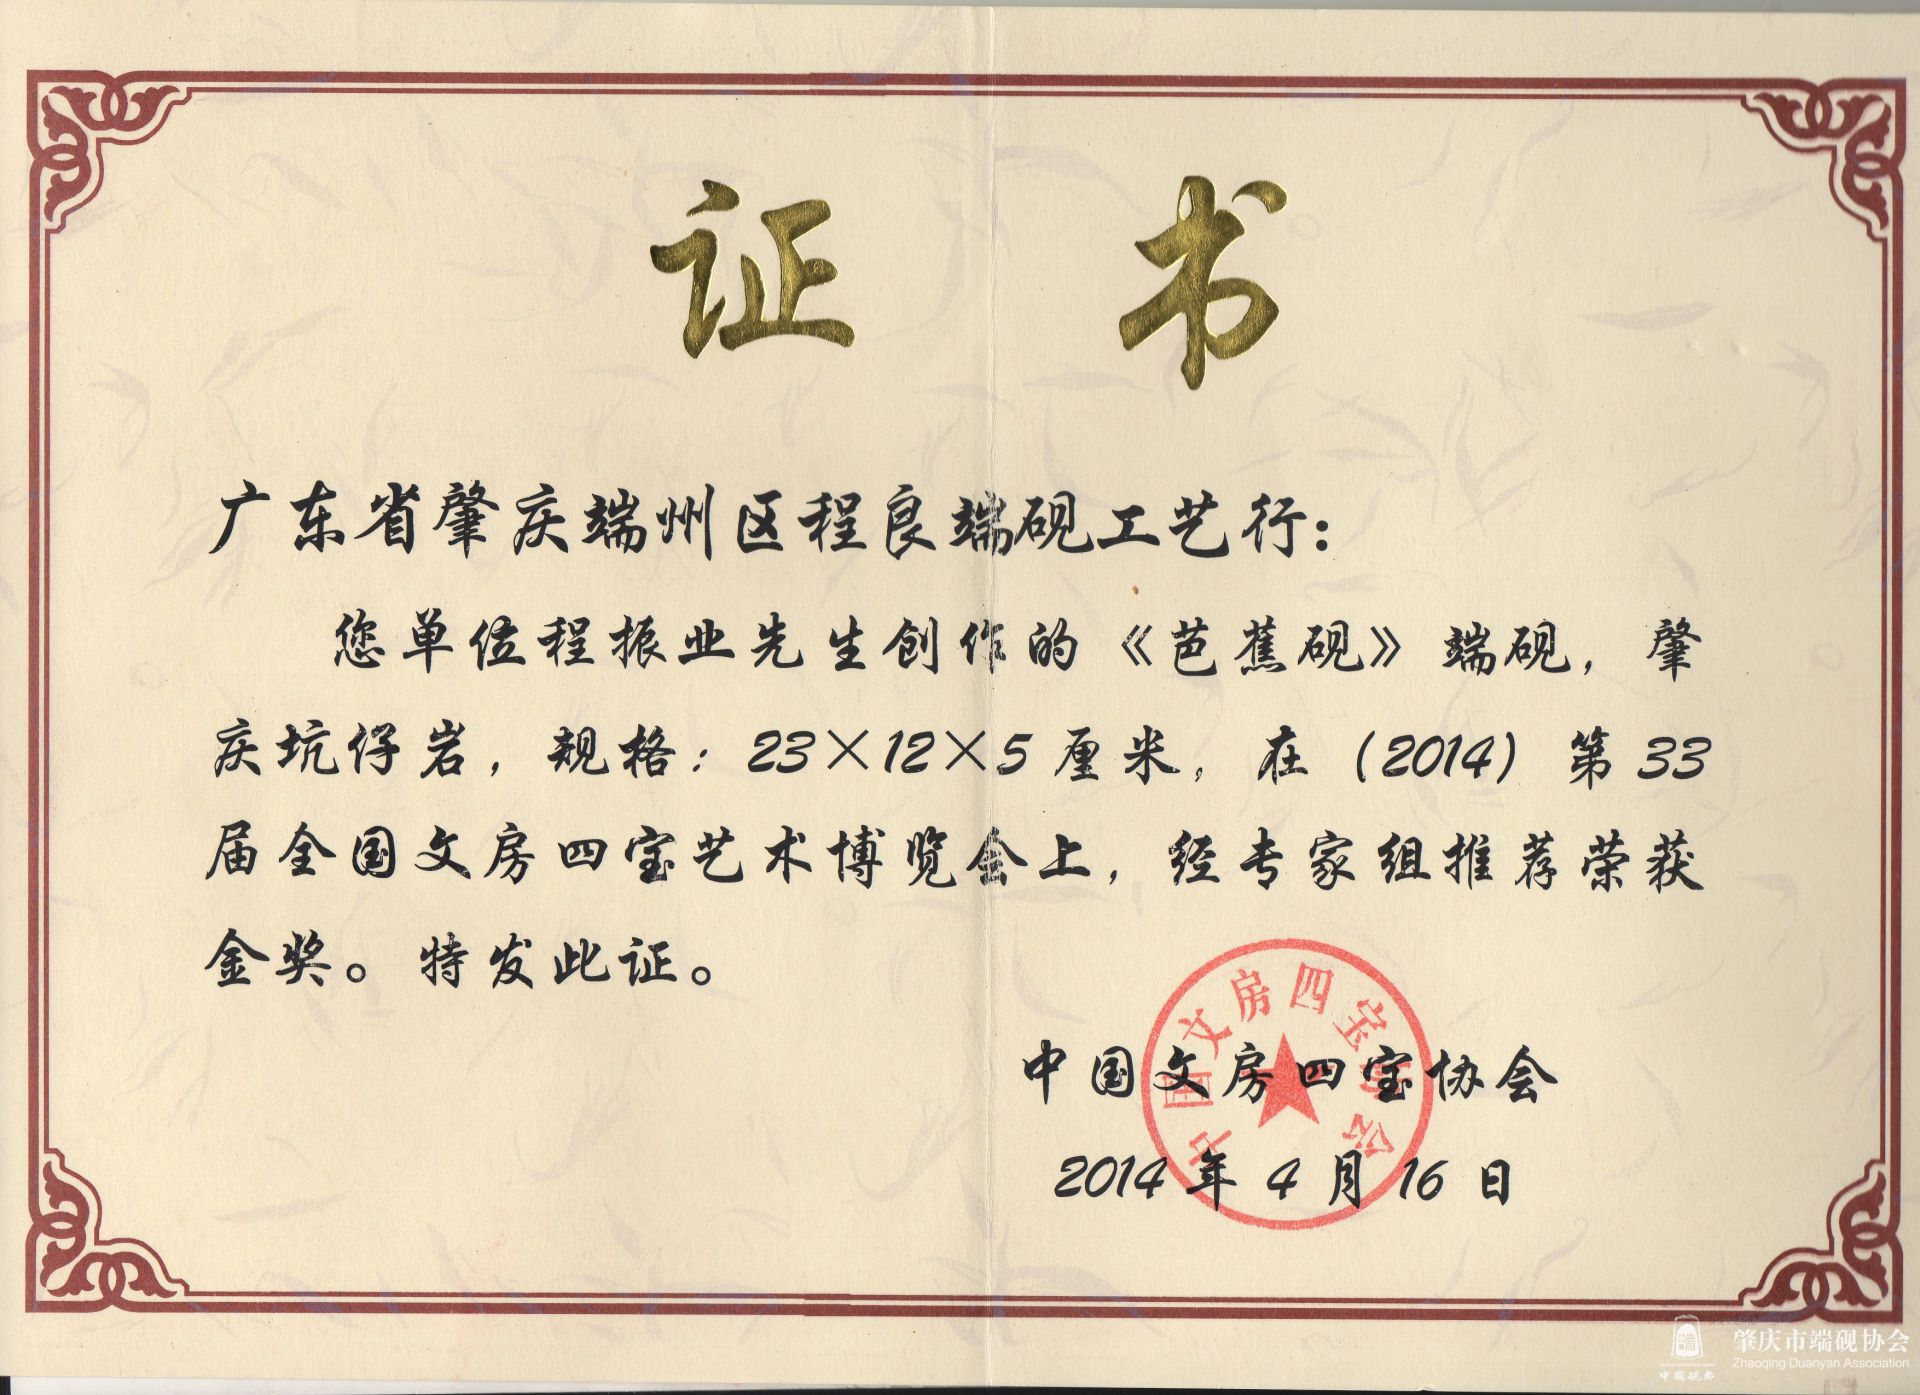 证 书
广东省肇庆端州区程良端砚工艺行：
您单位程振业先生创作的《芭蕉砚》端砚，肇
庆坑仔岩，规格：23×12×5厘米，在（2014）第33
届全国文房四宝艺术博览会上，经专家组推荐荣获
金奖。特发此证。
中国文房四宝协会
2014年4月16日
中国文房四宝协会
肇庆市端砚协会
Zhaoqing Duanyan Association
中国砚都